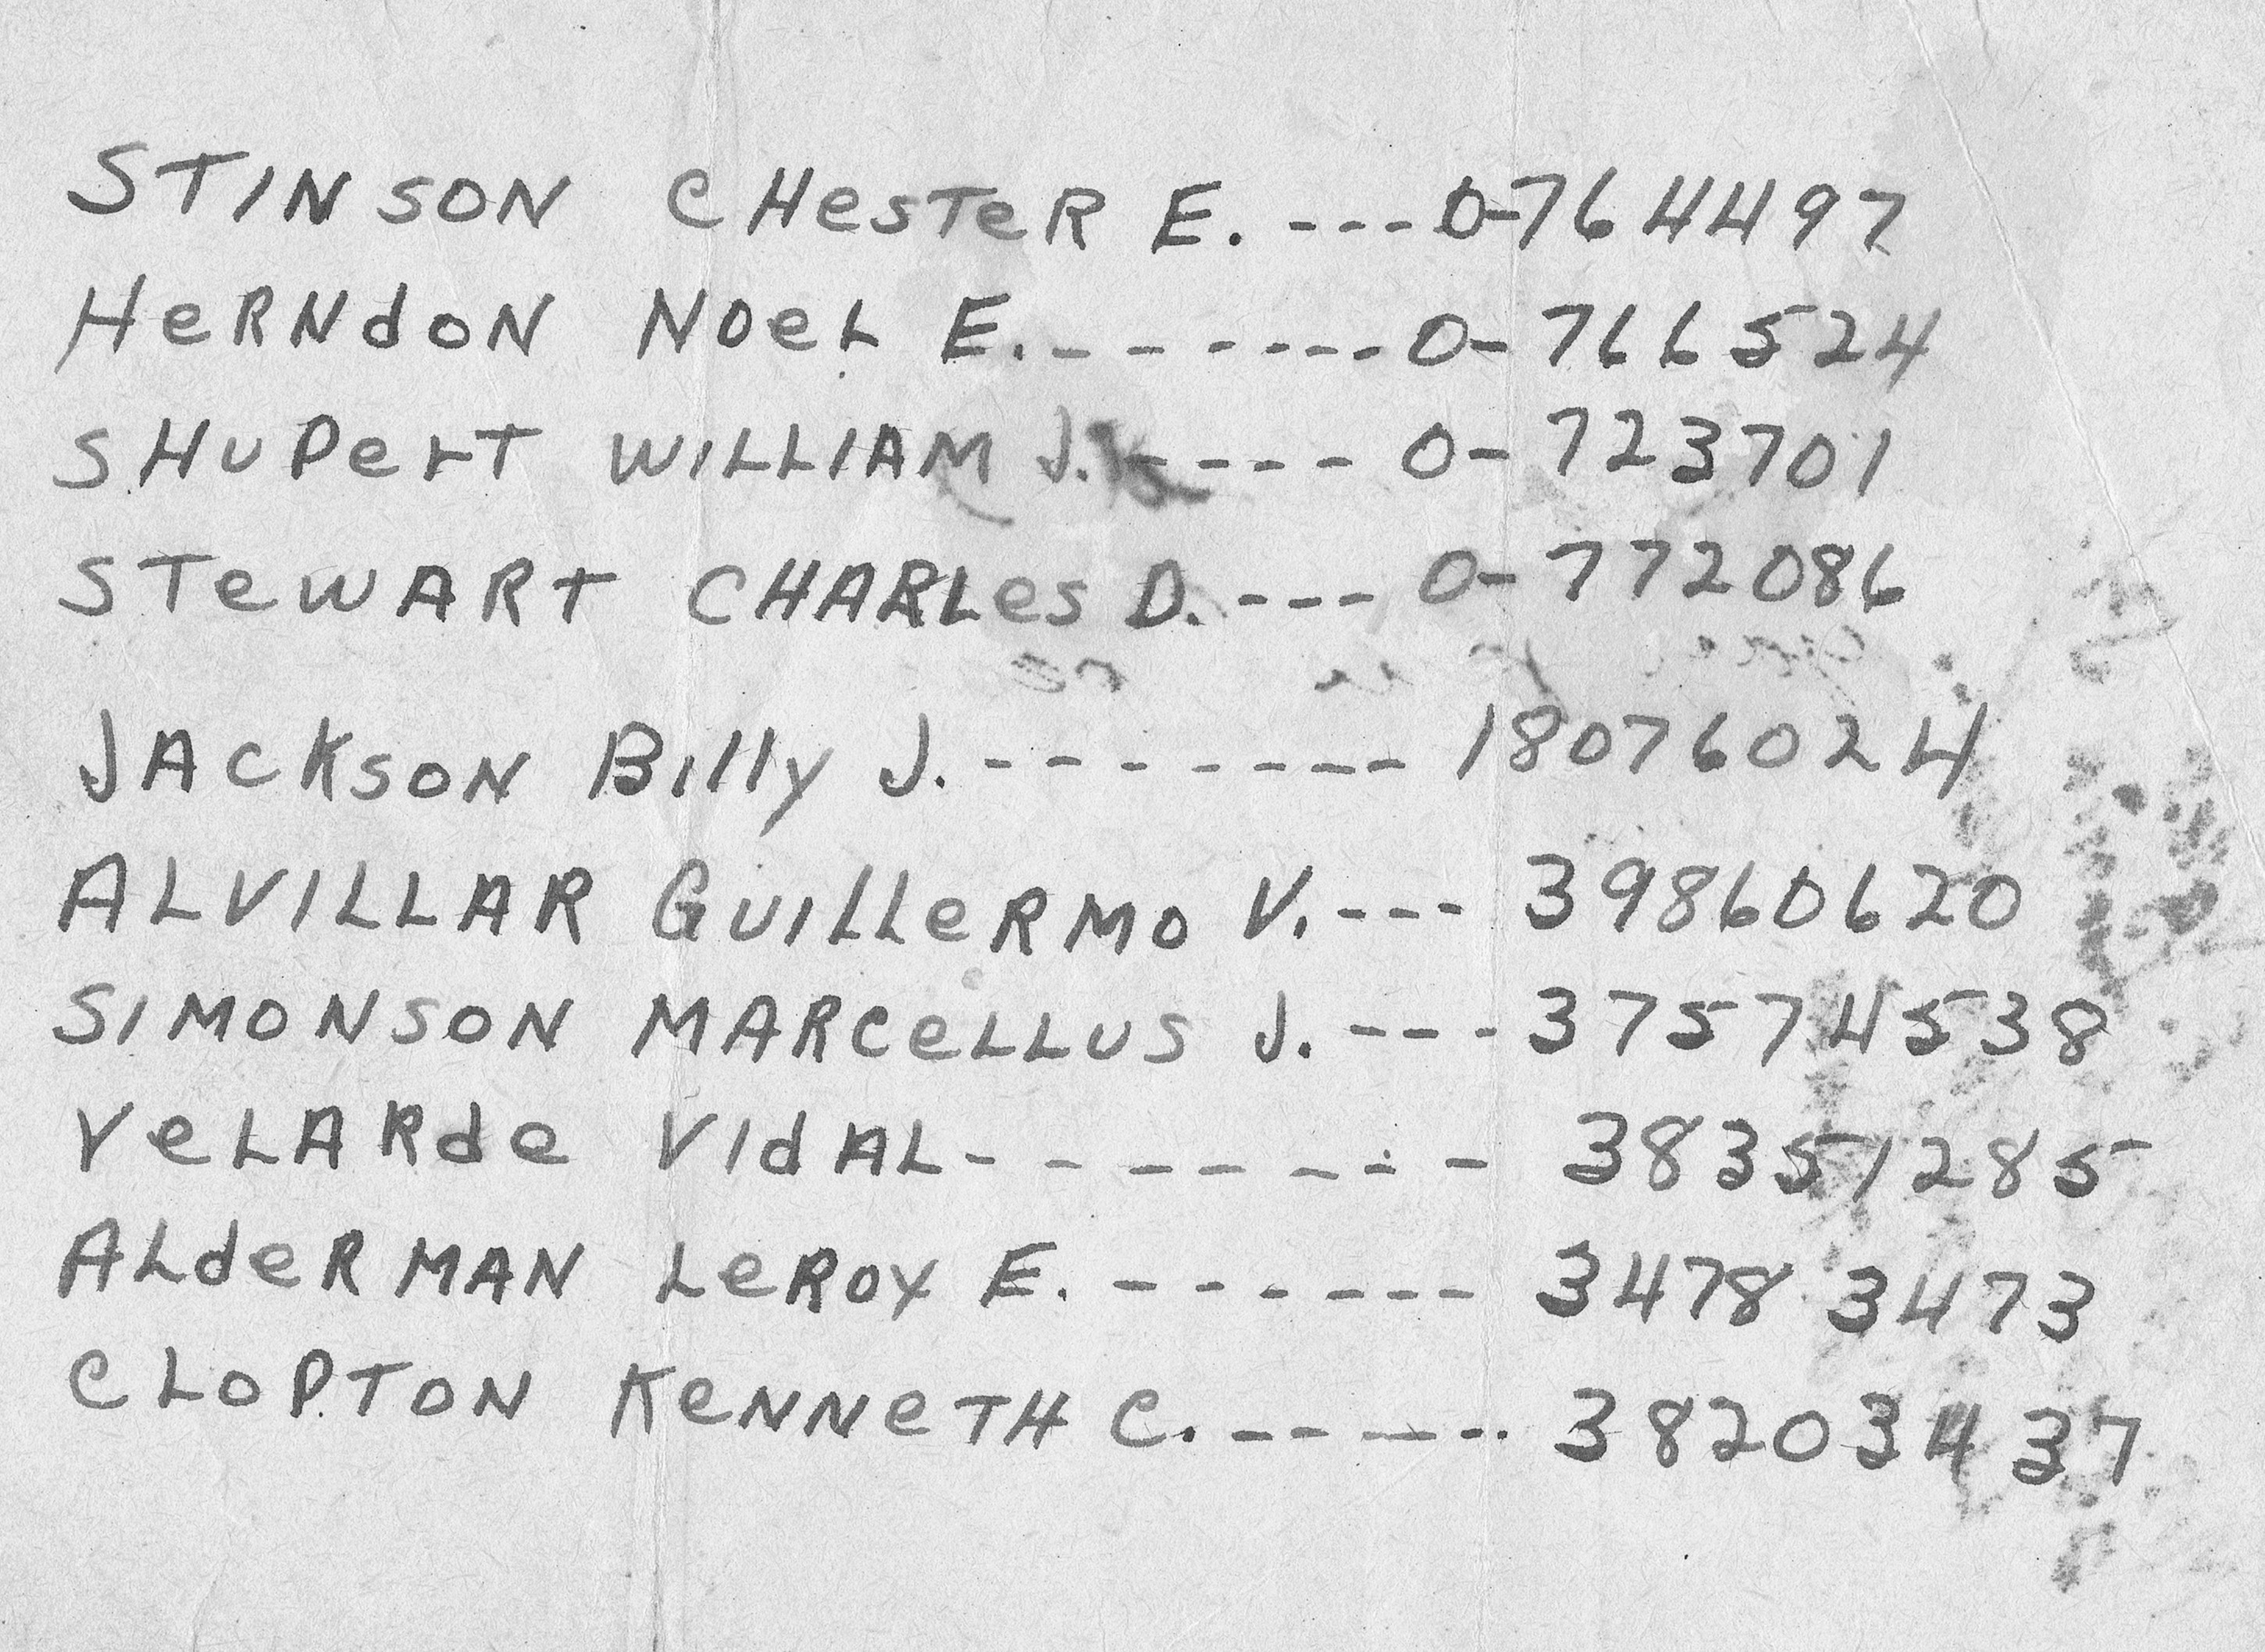 STINSON CHesTeR E. ---O-764497
HeRNdoN NoeL E.--------O-766524
SHUPeLT WILLIAM J.----- O-723701
STeWART CHARLes D.--- O-772086
JACKSON Billy J.-------- 18076024
ALVILLAR GuilleRMo V.--- 39860620
SIMONSON MARCeLLUS J.---37574538
VeLARde VIdAL-------- 38351285
ALdeRMAN LeROY E. ------- 34783473
CLOPTON KeNNeTH C.------ 38203437